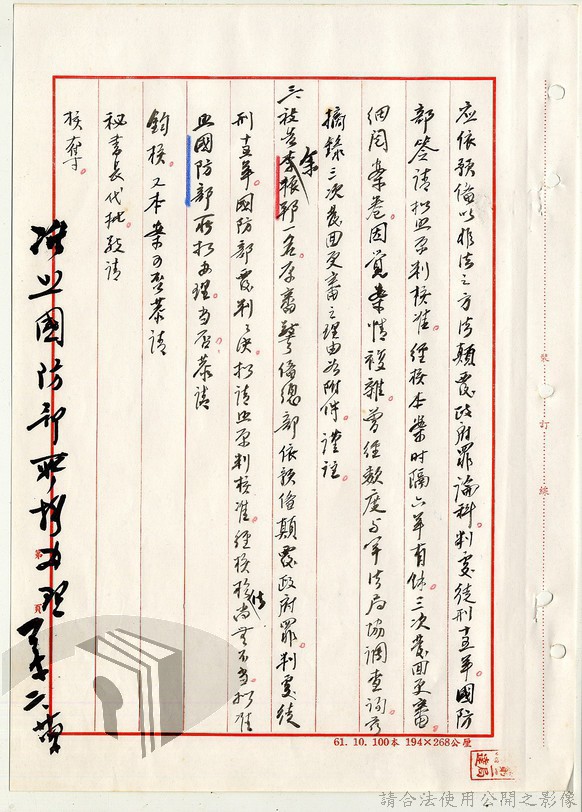 应依預備以非法之方法顛覆政府罪論科判處徒刑十五年國防
部簽請擬照原判核准。經核本案時隔六年有餘。三次發回更審。
細閱案卷。因覺案情複雜。曾經數度与軍法局協調查詢。茲
摘錄三次發回更審之理由如附件。謹註。
三、被告余振邦一名。原審警備總部依預備顛覆政府罪。判處徒
刑十五年。國防部覆判之決。擬請照原判核准。經核尚無不當。擬准
照國防部所擬辦理。當否恭請
鈞核。又本案可否恭請
秘書長代批敬請
核奪。
擬照國防部所擬辦理
第 頁
裝 訂 線
61. 10. 100本 194×268公厘
請合法使用公開之影像